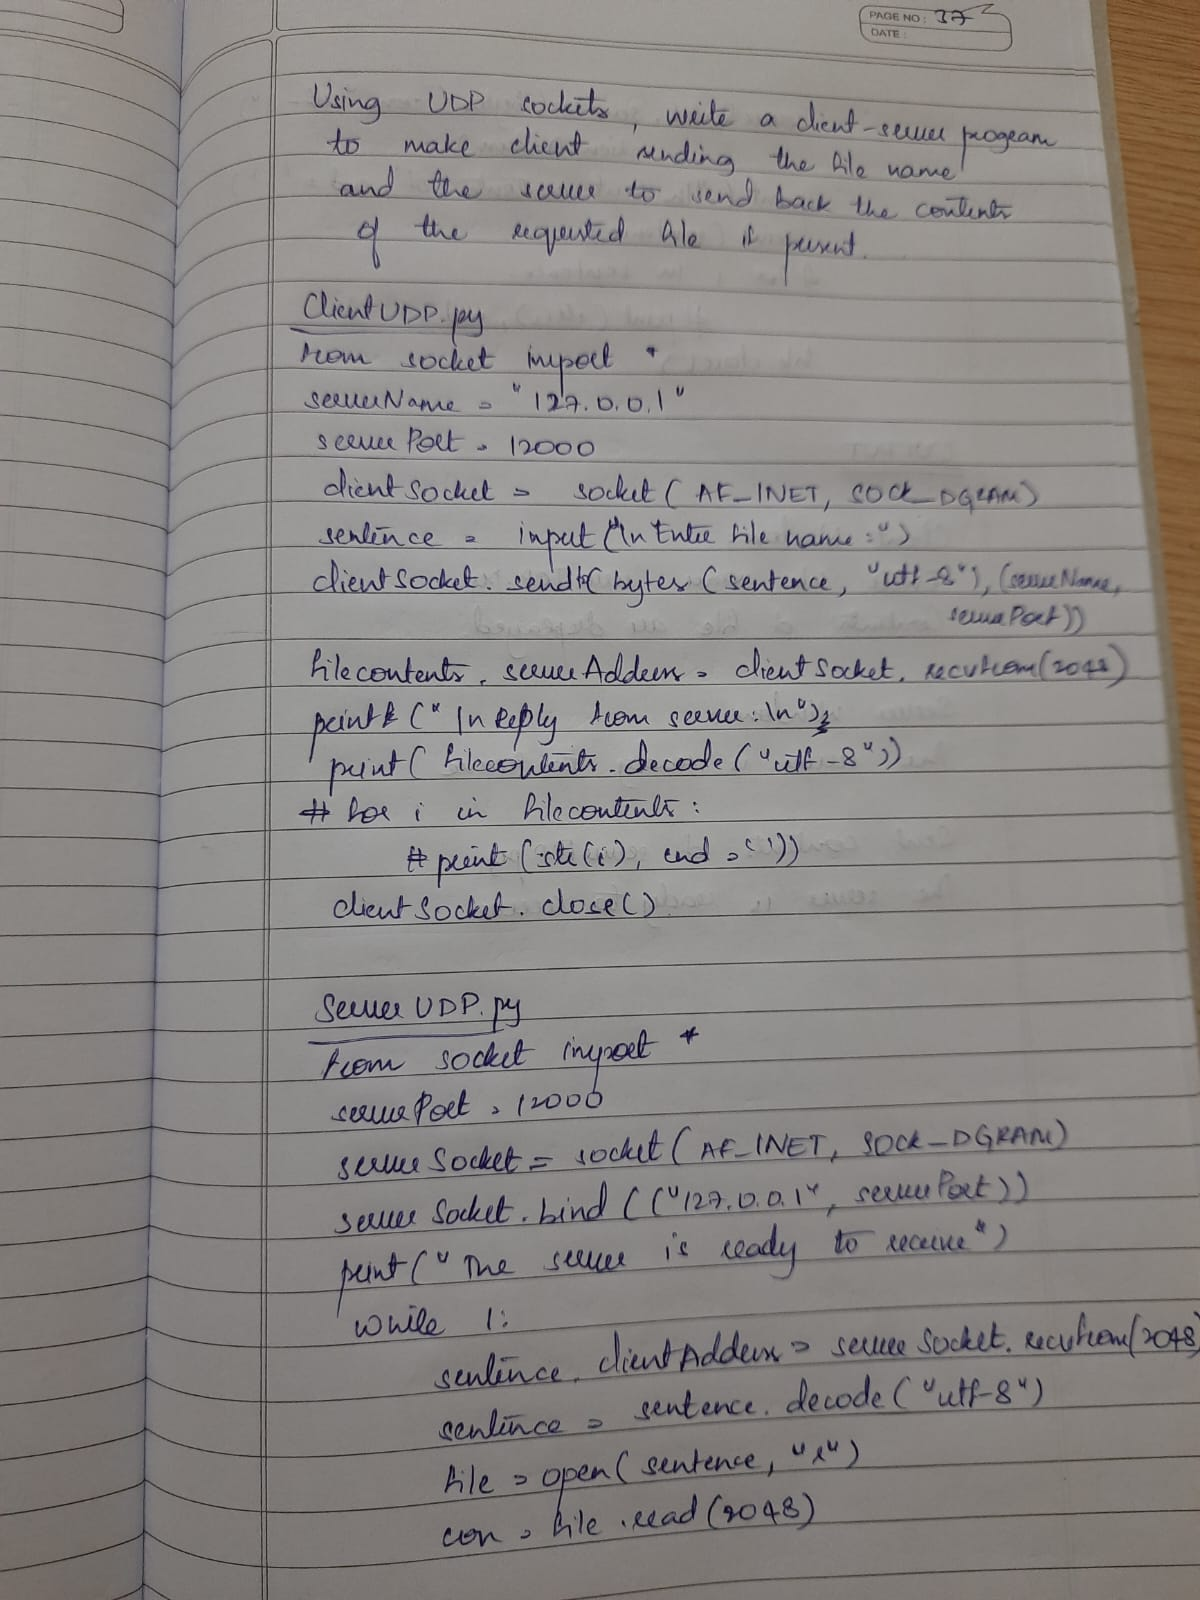 PAGE NO: 37
DATE:
Using UDP sockets, write a client-server program
to make client sending the file name
and the server to send back the contents
of the requested file if present.
ClientUDP.py
from socket import *
serverName = "127.0.0.1"
serverPort = 12000
clientSocket = socket(AF_INET, SOCK_DGRAM)
sentence = input("\n Enter file name:")
clientSocket.sendto(bytes(sentence, "utf-8"), (serverName,
serverPort))
filecontents, serverAddress = clientSocket.recvfrom(2048)
print("\n Reply from server:\n");
print(filecontents.decode("utf-8"))
# for i in filecontents:
# print(str(i), end = '')
clientSocket.close()
ServerUDP.py
from socket import *
serverPort = 12000
serverSocket = socket(AF_INET, SOCK_DGRAM)
serverSocket.bind(("127.0.0.1", serverPort))
print("The server is ready to receive")
while 1:
sentence, clientAddress = serverSocket.recvfrom(2048)
sentence = sentence.decode("utf-8")
file = open(sentence, "r")
con = file.read(2048)